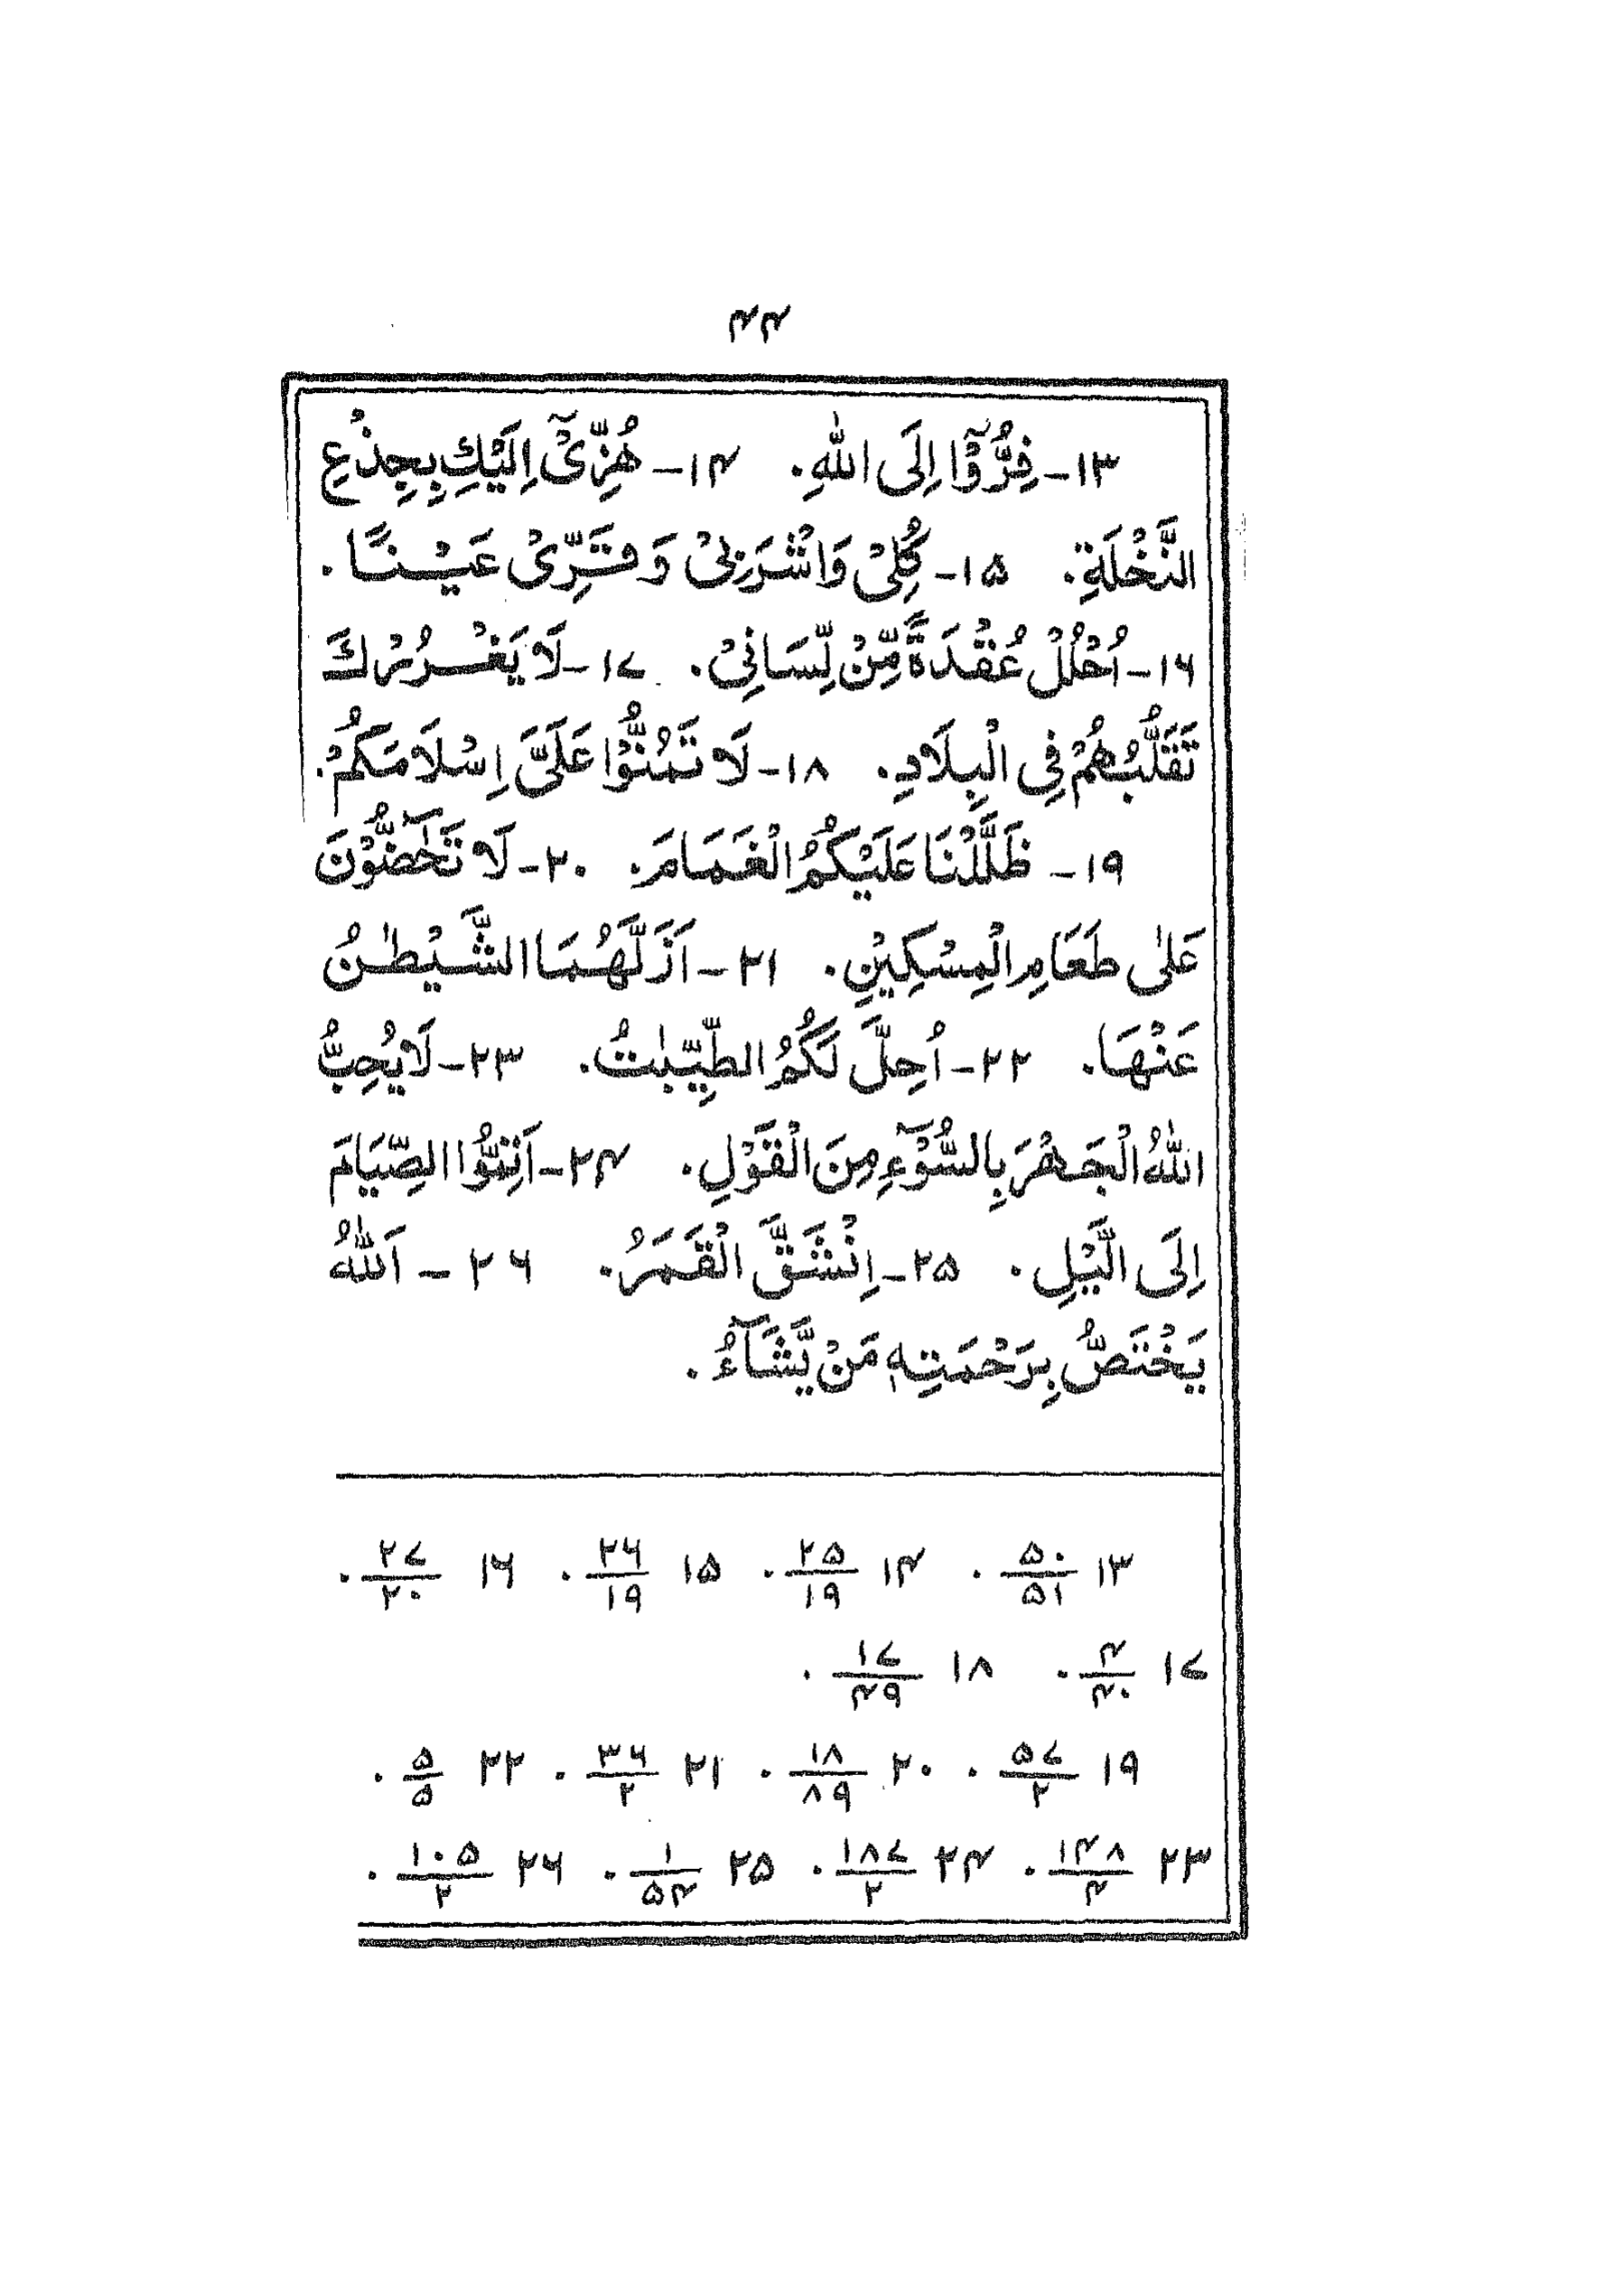 ۴۴
۱۳- فِرُّوْٓا اِلَى اللّٰهِ. ۱۴- هُزِّىْٓ اِلَيْكِ بِجِذْعِ
النَّخْلَةِ. ۱۵- كُلِىْ وَاشْرَبِىْ وَقَرِّىْ عَيْنًا.
۱۶- اُحْلُلْ عُقْدَةً مِّنْ لِّسَانِىْ. ۱۷- لَا يَغْرُرْكَ
تَقَلُّبُهُمْ فِى الْبِلَادِ. ۱۸- لَا تَمُنُّوْا عَلَىَّ اِسْلَامَكُمْ.
۱۹- ظَلَّلْنَا عَلَيْكُمُ الْغَمَامَ. ۲۰- لَا تَحٰٓضُّوْنَ
عَلٰى طَعَامِ الْمِسْكِيْنِ. ۲۱- اَزَلَّهُمَا الشَّيْطٰنُ
عَنْهَا. ۲۲- اُحِلَّ لَكُمُ الطَّيِّبٰتُ. ۲۳- لَا يُحِبُّ
اللّٰهُ الْجَهْرَ بِالسُّوْٓءِ مِنَ الْقَوْلِ. ۲۴- اَتِمُّوا الصِّيَامَ
اِلَى الَّيْلِ. ۲۵- اِنْشَقَّ الْقَمَرُ. ۲۶- اَللّٰهُ
يَخْتَصُّ بِرَحْمَتِهٖ مَنْ يَّشَآءُ.
۱۳ ۵۰/۵۱. ۱۴ ۲۵/۱۹. ۱۵ ۲۶/۱۹. ۱۶ ۲۷/۲۰.
۱۷ ۴/۴۰. ۱۸ ۱۷/۴۹.
۱۹ ۵۷/۲. ۲۰ ۱۸/۸۹. ۲۱ ۳۶/۲. ۲۲ ۵/۵.
۲۳ ۱۴۸/۴. ۲۴ ۱۸۷/۲. ۲۵ ۱/۵۴. ۲۶ ۱۰۵/۲.